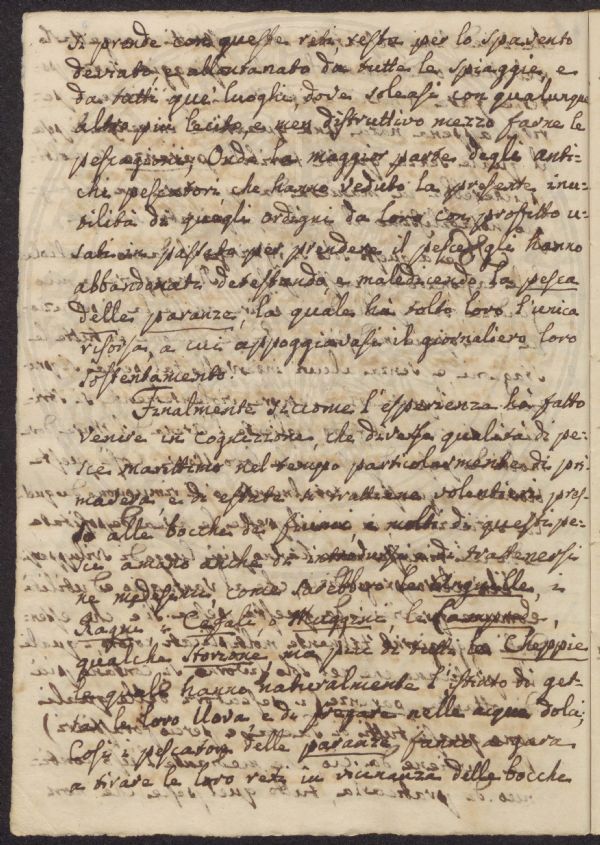 si prende con queste reti, resta per lo spavento
deviato, e allontanato da tutte le spiaggie, e
da tutti que' luoghi, dove soleasi con qualunque
altro più lecito, e men distruttivo mezzo farne le
pescagioni; Onde la maggior parte degli anti-
chi pescatori, che hanno veduto la presente inu-
tilità di quegli ordigni da loro con profitto u-
sati in passato per prendere il pesce, gli hanno
abbandonati detestando, e maledicendo la pesca
delle paranze, la quale ha tolto loro l'unica
risorsa, a cui appoggiavasi il giornaliero loro
sostentamento.
Finalmente siccome l'esperienza ha fatto
venire in cognizione, che diverse qualità di pe-
sce marittimo nel tempo particolarmente di pri-
mavera, e di estate si trattiene volentieri pres-
so alle bocche di fiumi e molti di questi pe-
sci amano anche di introdursi e di trattenersi
ne' medesimi come sarebbero le Anguille, i
Ragni, i Cefali, o Muggini, le
qualche Storione, ma più di tutti le Cheppie
le quali hanno naturalmente l'istinto di get-
tar le loro Uova, e di fregare nelle acque dolci;
Così i pescatori delle paranze fanno a gara
a tirare le loro reti in vicinanza delle bocche